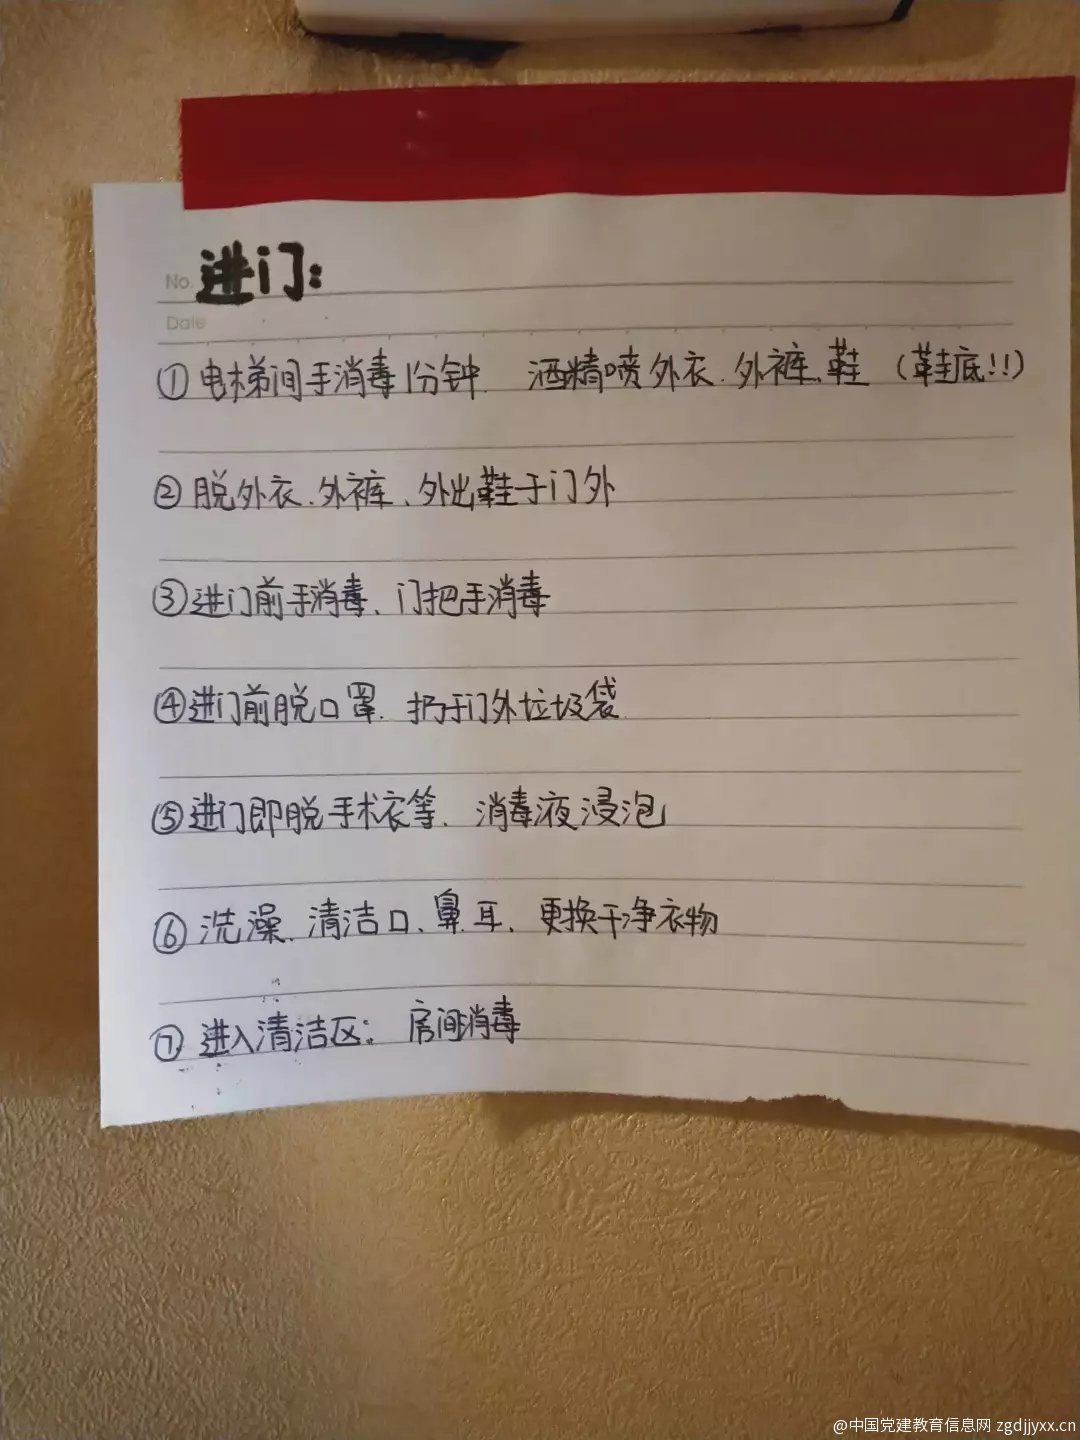 No. 进门：
Date
①电梯间手消毒1分钟. 酒精喷外衣、外裤、鞋（鞋底!!）
②脱外衣、外裤、外出鞋于门外
③进门前手消毒、门把手消毒
④进门前脱口罩. 扔于门外垃圾袋
⑤进门即脱手术衣等. 消毒液浸泡
⑥洗澡、清洁口、鼻、耳、更换干净衣物
⑦进入清洁区：房间消毒
@中国党建教育信息网 zgdjjyxx.cn